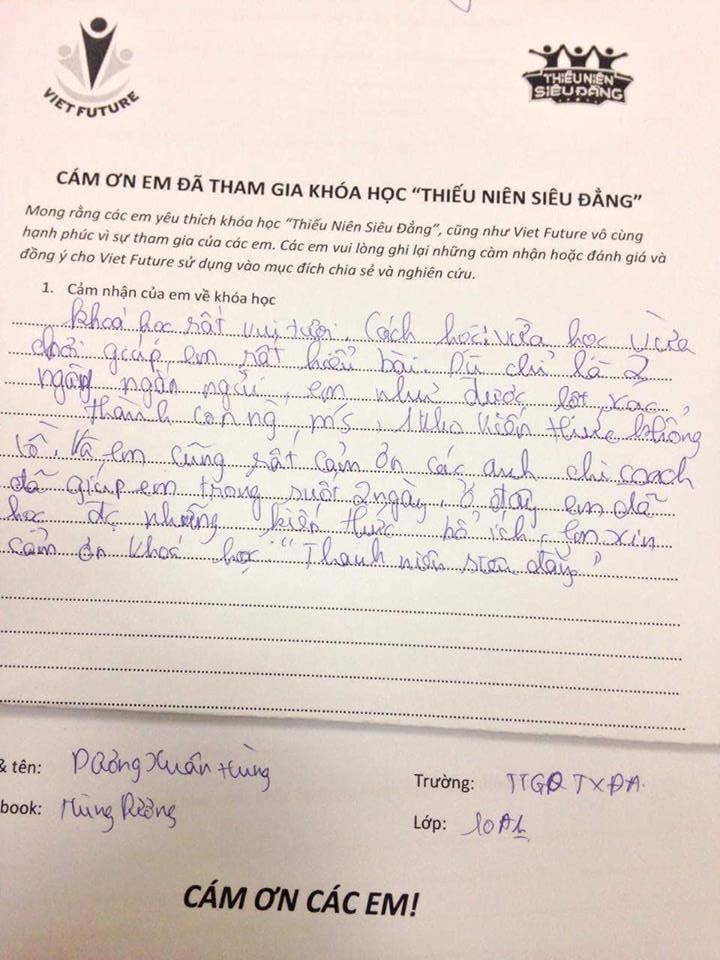 VIET FUTURE
THIẾU NIÊN
SIÊU ĐẲNG
CÁM ƠN EM ĐÃ THAM GIA KHÓA HỌC “THIẾU NIÊN SIÊU ĐẲNG”
Mong rằng các em yêu thích khóa học “Thiếu Niên Siêu Đẳng”, cũng như Viet Future vô cùng
hạnh phúc vì sự tham gia của các em. Các em vui lòng ghi lại những càm nhận hoặc đánh giá và
đồng ý cho Viet Future sử dụng vào mục đích chia sẻ và nghiên cứu.
1. Cảm nhận của em về khóa học
Khoá học rất vui tươi. Cách học: vừa học vừa
chơi giúp em rất hiểu bài. Dù chỉ là 2
ngày ngắn ngủi, em như được lột xác,
thành con ng, ms, 1 kho kiến thức khổng
lồ. Và em cũng rất cảm ơn các anh chị coach
đã giúp em trong suốt 2 ngày. Ở đây em đã
học đc những kiến thức bổ ích, em xin
cảm ơn khoá học "Thanh niên siêu đẳng"
& tên: Dương Xuân Hùng
Trường: TTGDTX ĐA.
book: Hùng Dương
Lớp: 10A
CÁM ƠN CÁC EM!